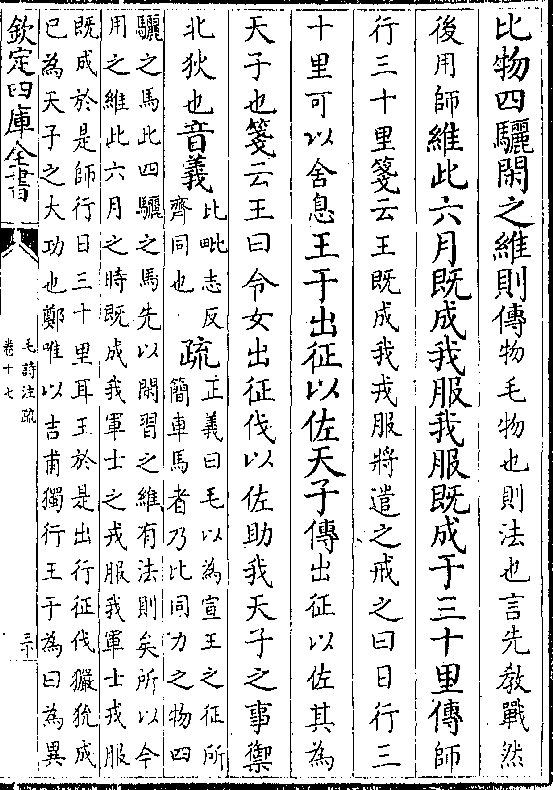 比物四驪閑之維則傳物毛物也則法也言先教戰然
後用師維此六月既成我服我服既成于三十里傳師
行三十里箋云王既成我戎服將遣之戒之曰日行三
十里可以舍息王于出征以佐天子傳出征以佐其為
天子也箋云王曰令女出征伐以佐助我天子之事禦
北狄也音義比毗志反
齊同也疏正義曰毛以為宣王之征所
簡車馬者乃比同力之物四
驪之馬此四驪之馬先以閑習之維有法則矣所以今
用之維此六月之時既成我軍士之戎服我軍士戎服
既成於是師行日三十里耳王於是出行征伐玁狁成
已為天子之大功也鄭唯以吉甫獨行王于為曰為異
欽定四庫全書
毛詩注疏
卷十七
三十